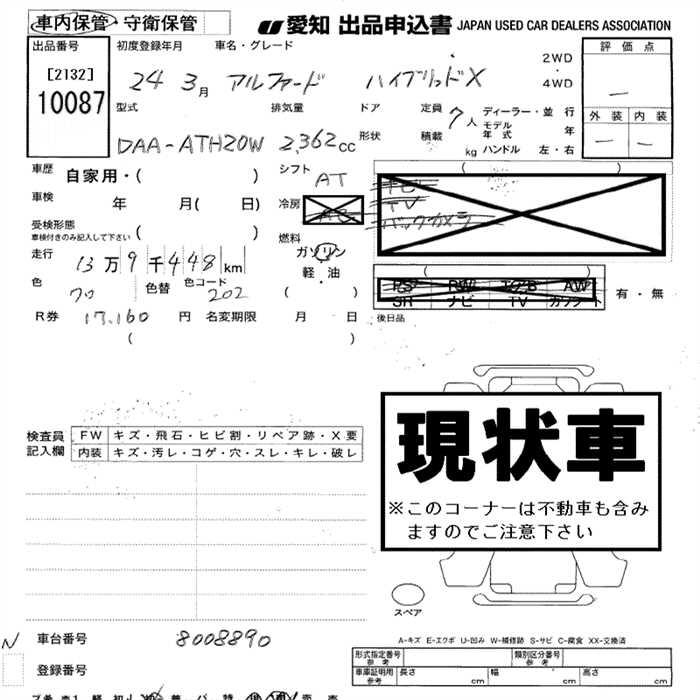 車内保管・守衛保管 愛知 出品申込書 JAPAN USED CAR DEALERS ASSOCIATION
出品番号 初度登録年月 車名・グレード 2WD 評価点
[2132] 24 3月 アルファード ハイブリッドX ・4WD —
10087 型式 排気量 ドア 定員 7人 ディーラー・並行 外装 内装
モデル年式 年
DAA-ATH20W 2,362cc 形状 積載 kg ハンドル 左・右 — —
車歴 自家用・( ) シフト AT
ナビ
TV
車検 年 月( 日) 冷房 AC バックカメラ
受検形態 ( )
車検付きのみ記入して下さい
燃料
走行 13万9千448km ガソリン
軽・油
( )
PS PW エアB AW
SR ナビ TV カワシート 有・無
色 70 色替 色コード 202 ( )
R券 17,160 円 名変期限 月 日 後日品
( )
現状車
※このコーナーは不動車も含み
ますのでご注意下さい
検査員 FW キズ・飛石・ヒビ割・リペア跡・X要
記入欄 内装 キズ・汚レ・コゲ・穴・スレ・キレ・破レ
スペア
A-キズ E-エクボ U-凹み W-補修跡 S-サビ C-腐食 XX-交換済
N 車台番号 8008890
型式指定番号 参考 類別区分番号 参考
登録番号 車庫証明用 参考 cm 長さ 幅 高さ cm